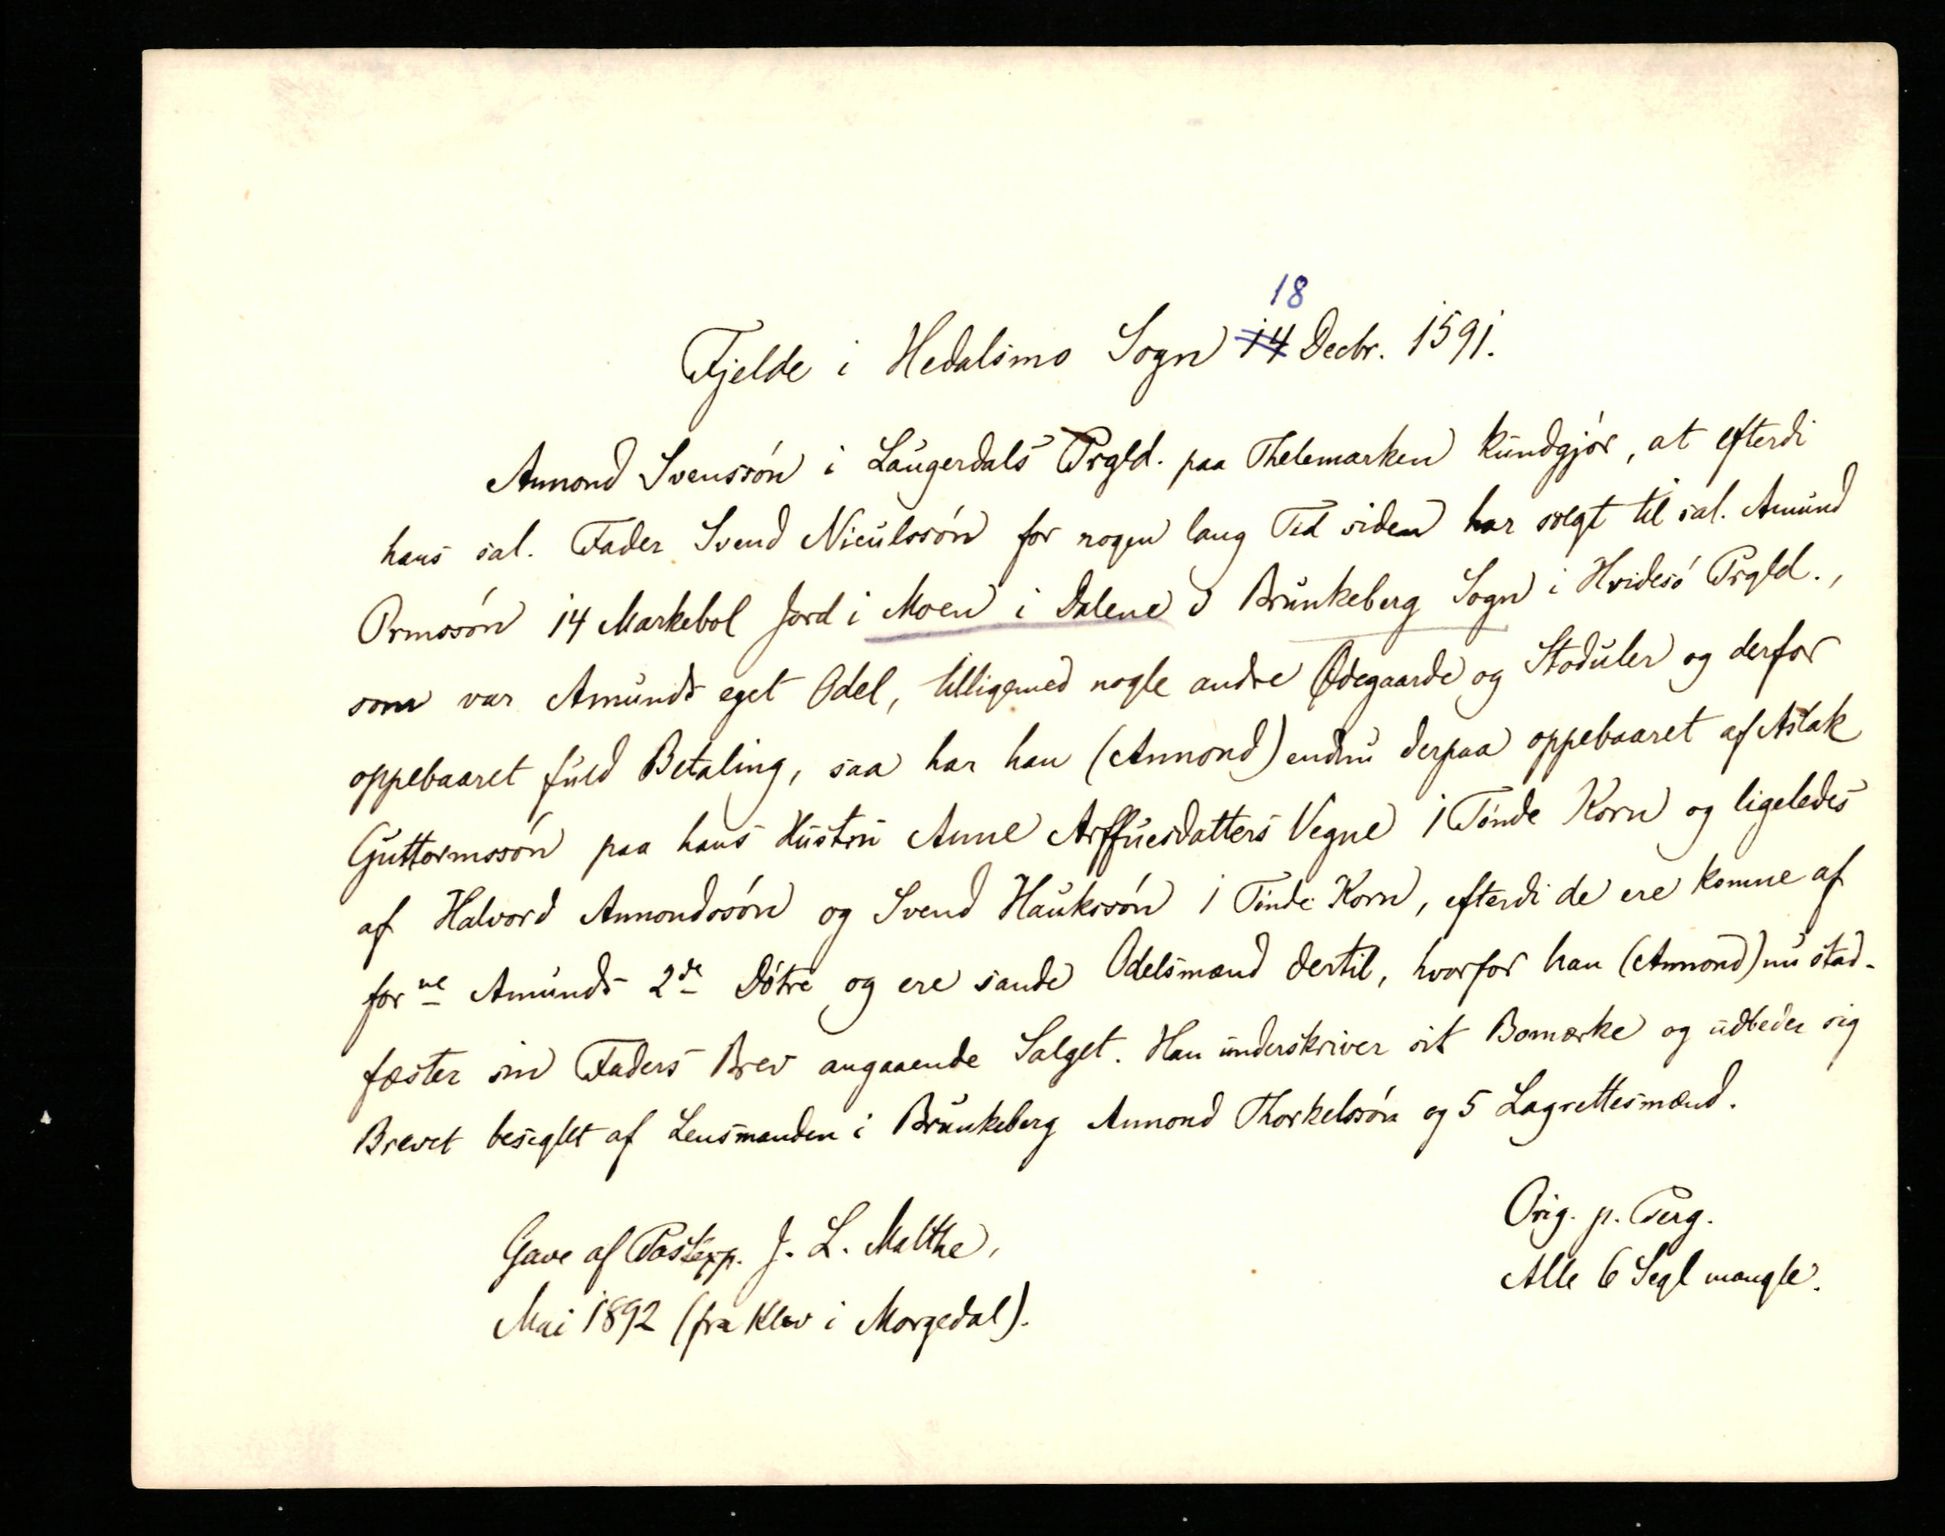 18
Fjelde i Hedalsmo Sogn 14 Decbr. 1591.
Anmond Svenssøn i Laugerdals Prgld. paa Thelemarken kundgjør, at efterdi
hans sal. Fader Svend Niculssøn for nogen lang Tid siden har solgt til sal. Amund
Ormssøn 14 Markebol Jord i Moen i Dalene i Brunkeberg Sogn i Hvidesø Prgld.,
som var Amunds eget Odel, tilligemed nogle andre Ødegaarde og Støduler og derfor
oppebaaret fuld Betaling, saa har han (Anmond) endnu derpaa oppebaaret af Aslak
Guttormssøn paa hans Hustru Anne Arffuesdatters Vegne 1 Tønde Korn og ligeledes
af Halvord Anmondssøn og Svend Haukssøn 1 Tønde Korn, efterdi de ere komne af
forne Amunds 2de Døtre og ere sande Odelsmænd dertil, hvorfor han (Anmond) nu stad-
fæster sin Faders Brev angaaende Salget. Han underskriver sit Bomærke og udbeder sig
Brevet beseglet af Lensmanden i Brunkeberg Anmond Thorkelssøn og 5 Lagrettesmænd.
Orig. p. Perg.
Alle 6 Segl mangle.
Gave af Postexp. J. L. Malthe,
Mai 1892 (fra Klev i Morgedal).